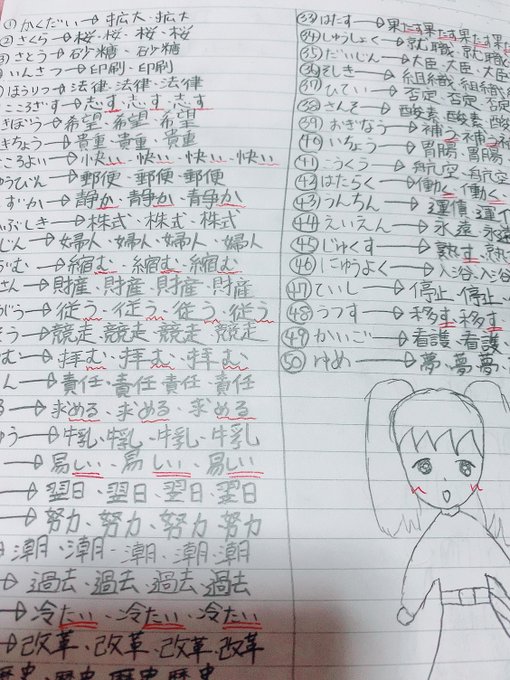 ①かくだい→拡大・拡大
②さくら→桜・桜・桜・桜
③さとう→砂糖・砂糖
いんさつ→印刷・印刷
ほうりつ→法律・法律・法律
こころざす→志す・志す・志す
きぼう→希望・希望・希望
きちょう→貴重・貴重・貴重
こころよい→快い・快い・快い・快い
ゆうびん→郵便・郵便・郵便
しずか→静か・静か・静か
かぶしき→株式・株式・株式
じん→婦人・婦人・婦人・婦人
む→縮む・縮む・縮む
さん→財産・財産・財産・財産
がう→従う・従う・従う・従う
そう→競走・競走・競走・競走
む→拝む・拝む・拝む
ん→責任・責任・責任・責任
る→求める・求める・求める
ゅう→牛乳・牛乳・牛乳・牛乳
→易しい・易しい・易しい
→翌日・翌日・翌日・翌日
→努力・努力・努力・努力
潮・潮・潮・潮
→過去・過去・過去・過去
→冷たい・冷たい・冷たい
→改革・改革・改革・改革
歴史・歴史・歴史・歴史
㉝はたす→果たす果たす果たす
㉞しゅうしょく→就職・就職・就職
㉟だいじん→大臣・大臣・大臣
㊱そしき→組織・組織・組織
㊲ひてい→否定・否定・否定
㊳さんそ→酸素・酸素・酸素
㊴おぎなう→補う・補う・補
㊵いちょう→胃腸・胃腸・
㊶こうくう→航空・航空・
㊷はたらく→働く・働く・
㊸うんちん→運賃・運
㊹えいえん→永遠・永遠
㊺じゅくす→熟す・熟
㊻にゅうよく→入浴・入浴
㊼ていし→停止・停止・
㊽うつす→移す・移す
㊾かいご→看護・看護・
㊿ゆめ→夢・夢・夢・